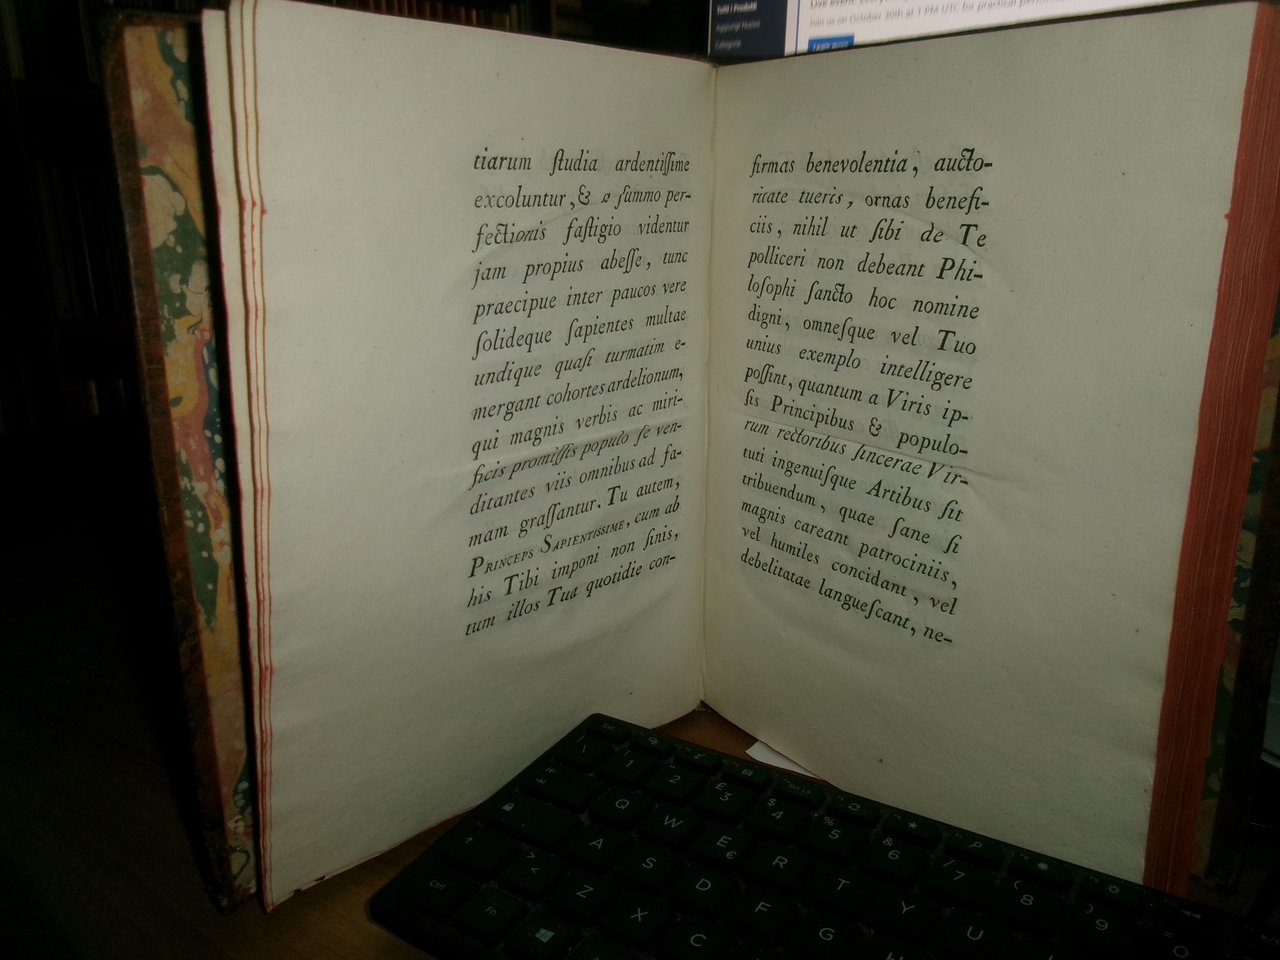 tiarum ſtudia ardentiſſime
excoluntur, & a ſummo per-
fectionis faſtigio videntur
jam propius abeſſe, tunc
praecipue inter paucos vere
ſolideque ſapientes multae
undique quaſi turmatim e-
mergant cohortes ardelionum,
qui magnis verbis ac miri-
ficis promiſſis populo ſe ven-
ditantes viis omnibus ad fa-
mam graſſantur. Tu autem,
PRINCEPS SAPIENTISSIME, cum ab
his Tibi imponi non ſinis,
tum illos Tua quotidie con-
firmas benevolentia, aucto-
ritate tueris, ornas benefi-
ciis, nihil ut ſibi de Te
polliceri non debeant Phi-
loſophi ſancto hoc nomine
digni, omneſque vel Tuo
unius exemplo intelligere
poſſint, quantum a Viris ip-
ſis Principibus & populo-
rum rectoribus ſincerae Vir-
tuti ingenuiſque Artibus ſit
tribuendum, quae ſane ſi
magnis careant patrociniis,
vel humiles concidant, vel
debelitatae langueſcant, ne-
Tutti i Prodotti
Aggiungi Nuovo
Categorie
Join us on October 30th at 1 PM UTC for practical
Learn more
Esc
\ 1 2 £ 3 $ 4 % 5 & 6 / 7 ( 8 ) 9 = 0
Q W E € R T Y U
A S D F G
< > Z X C
Ctrl Fn